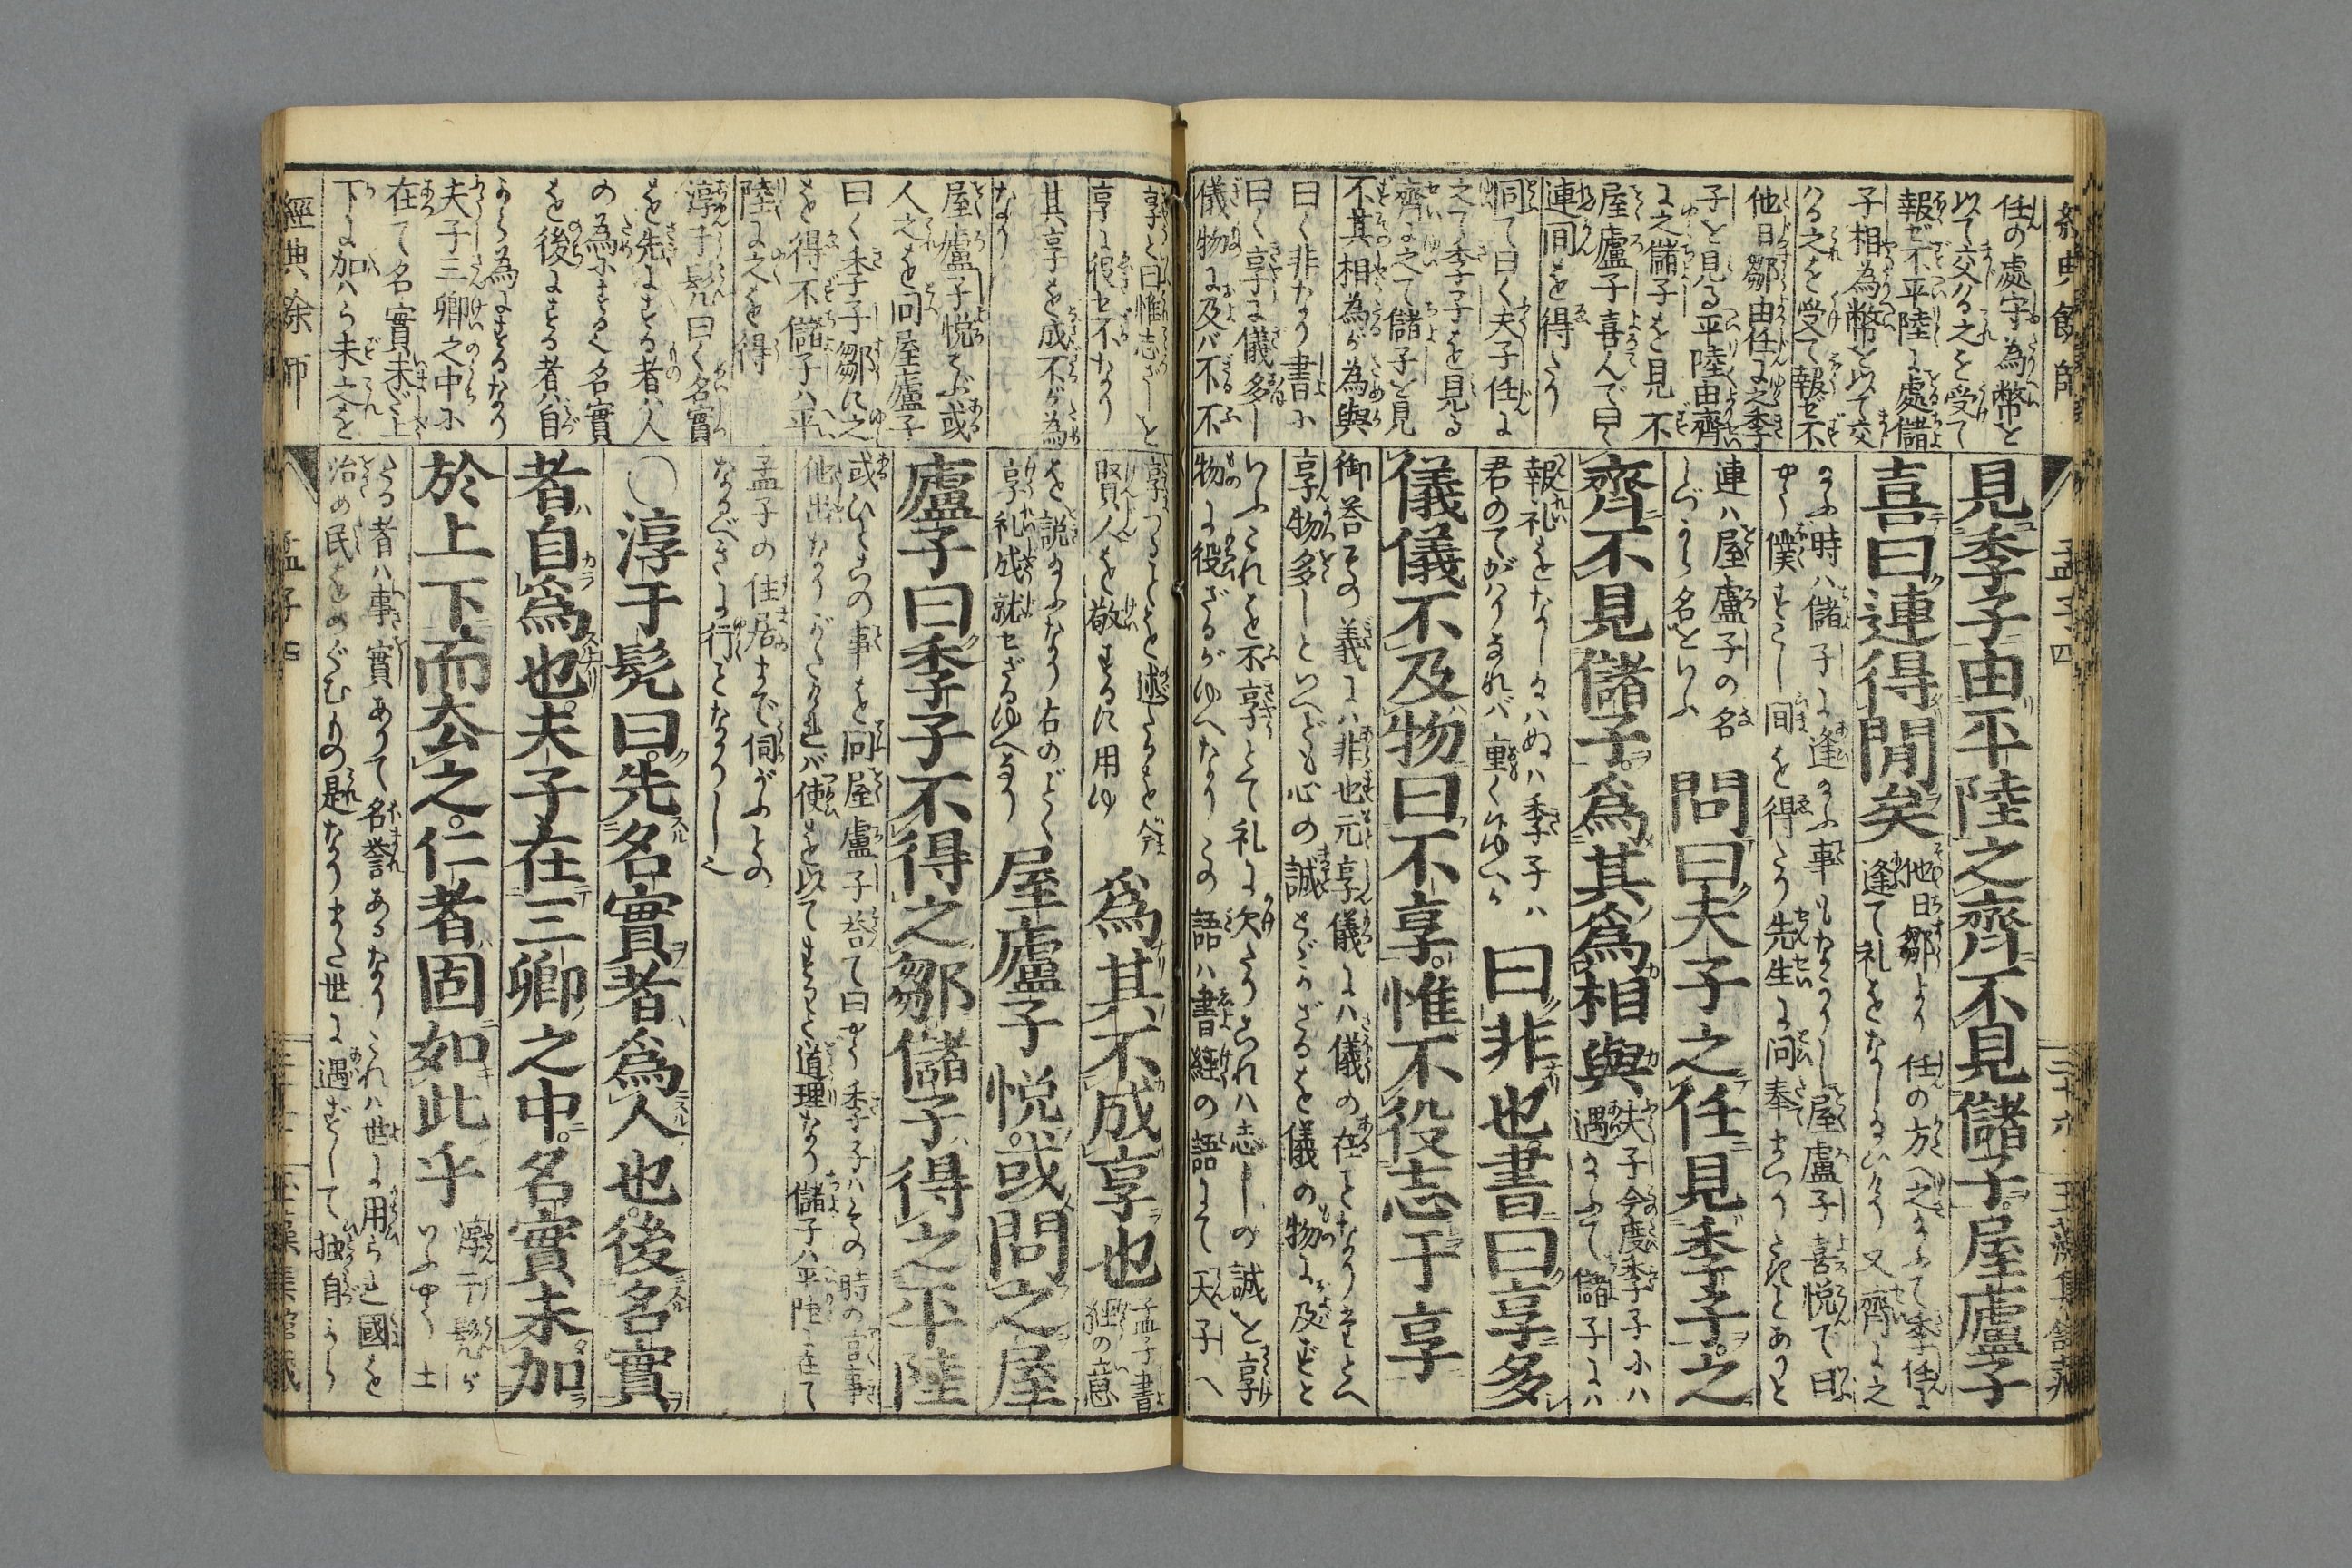 經典餘師
孟子四
任の處守為幣と
以て交ハる之を受て
報ゼ不平陸に處儲
子相為幣と以て交
ハる之を受て報ゼ不
他日鄒由任に之季
子と見る平陸由齊
に之儲子を見不
屋廬子喜んで曰く
連間を得たり
問て曰く夫子任に
之て季子を見る
齊に之て儲子と見
不其相為が為與
曰く非なり書に
曰く享に儀多し
儀物に及バ不不
見季子由平陸之齊不見儲子屋廬子
喜曰連得閒矣
他日鄒より任の方へ之給ふて季任に
逢て礼をなし給ひけり又齊に之
給ふ時ハ儲子に逢給ふ事もなかりし屋廬子喜悦で曰
やう僕すこし間を得たり先生に問奉まつりたきとあると
連ハ屋廬子の名
みづから名といふ
問曰夫子之任見季子之
齊不見儲子爲其爲相與
夫子今度季子にハ
遇給ふて儲子にハ
報礼をなし給ハぬハ季子ハ
君のてがハりなれバ重く
曰非也書曰享多
儀儀不及物曰不享惟不役志于享
御荅その義にハ非也元享儀にハ儀の在となり
享物多しといへども心の誠とゞかざるを儀の物に及ずと
いふこれを不享とて礼に次たりこれハ志しの誠と享
物に役ざるがゆへなりこの語ハ書経の語にて天子へ
享と曰惟志ざしと
享に役セ不なり
其享を成不ガ為
なり
屋廬子悦ぶ或
人之を問屋廬子
曰く季子鄒に之
を得不儲子ハ平
陸に之を得
淳于髡曰く名實
を先にする者ハ人
の為にする也名實
を後にする者ハ自
から為にするなり
夫子三卿之中に
在て名實未ダ上
下に加ハら未之を
賢人を敬するに用ゆ
爲其不成享也
孟子書
經の意
を説給ふなり右のごとく
享礼成就せざるゆへなり
屋廬子悦或問之屋
廬子曰季子不得之鄒儲子得之平陸
或ひとこの事を问屋廬子荅て曰やう季子ハその時の官事
他出なりがたけれバ使を以てすると道理なり儲子ハ平陸に在て
孟子の住居まで伺がふとの
なるべきに行となかりし也
○淳于髡曰先名實者爲人也後名實
者自爲也夫子在三卿之中名實未加
於上下而去之仁者固如此乎
淳于髡が
いふやう士
たる者ハ事實ありて名誉あるなりこれハ世に用られ國を
治め民をめぐむもの是なりまた世に遇ずして独自から
經典余師
孟子四